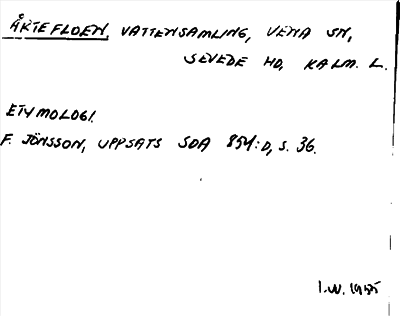 ÅKTEFLOEN, VATTENSAMLING, VENA SN,
SEVEDE HD, KALM. L.
ETYMOLOGI.
F. JÖNSSON, UPPSATS SDA 854:D, S. 36.
I.W. 1975